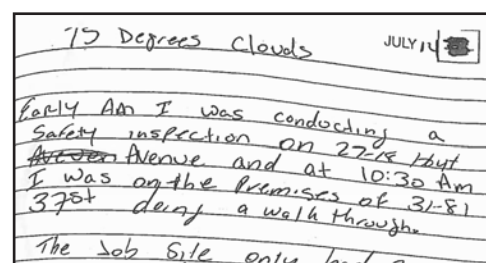 75 Degrees Clouds JULY 14
Early Am I was conducting a
Safety inspection on 27-18 Hoyt
Avenue and at 10:30 Am
I was on the Premises of 31-81
37st doing a walk through.
The Job Site only had